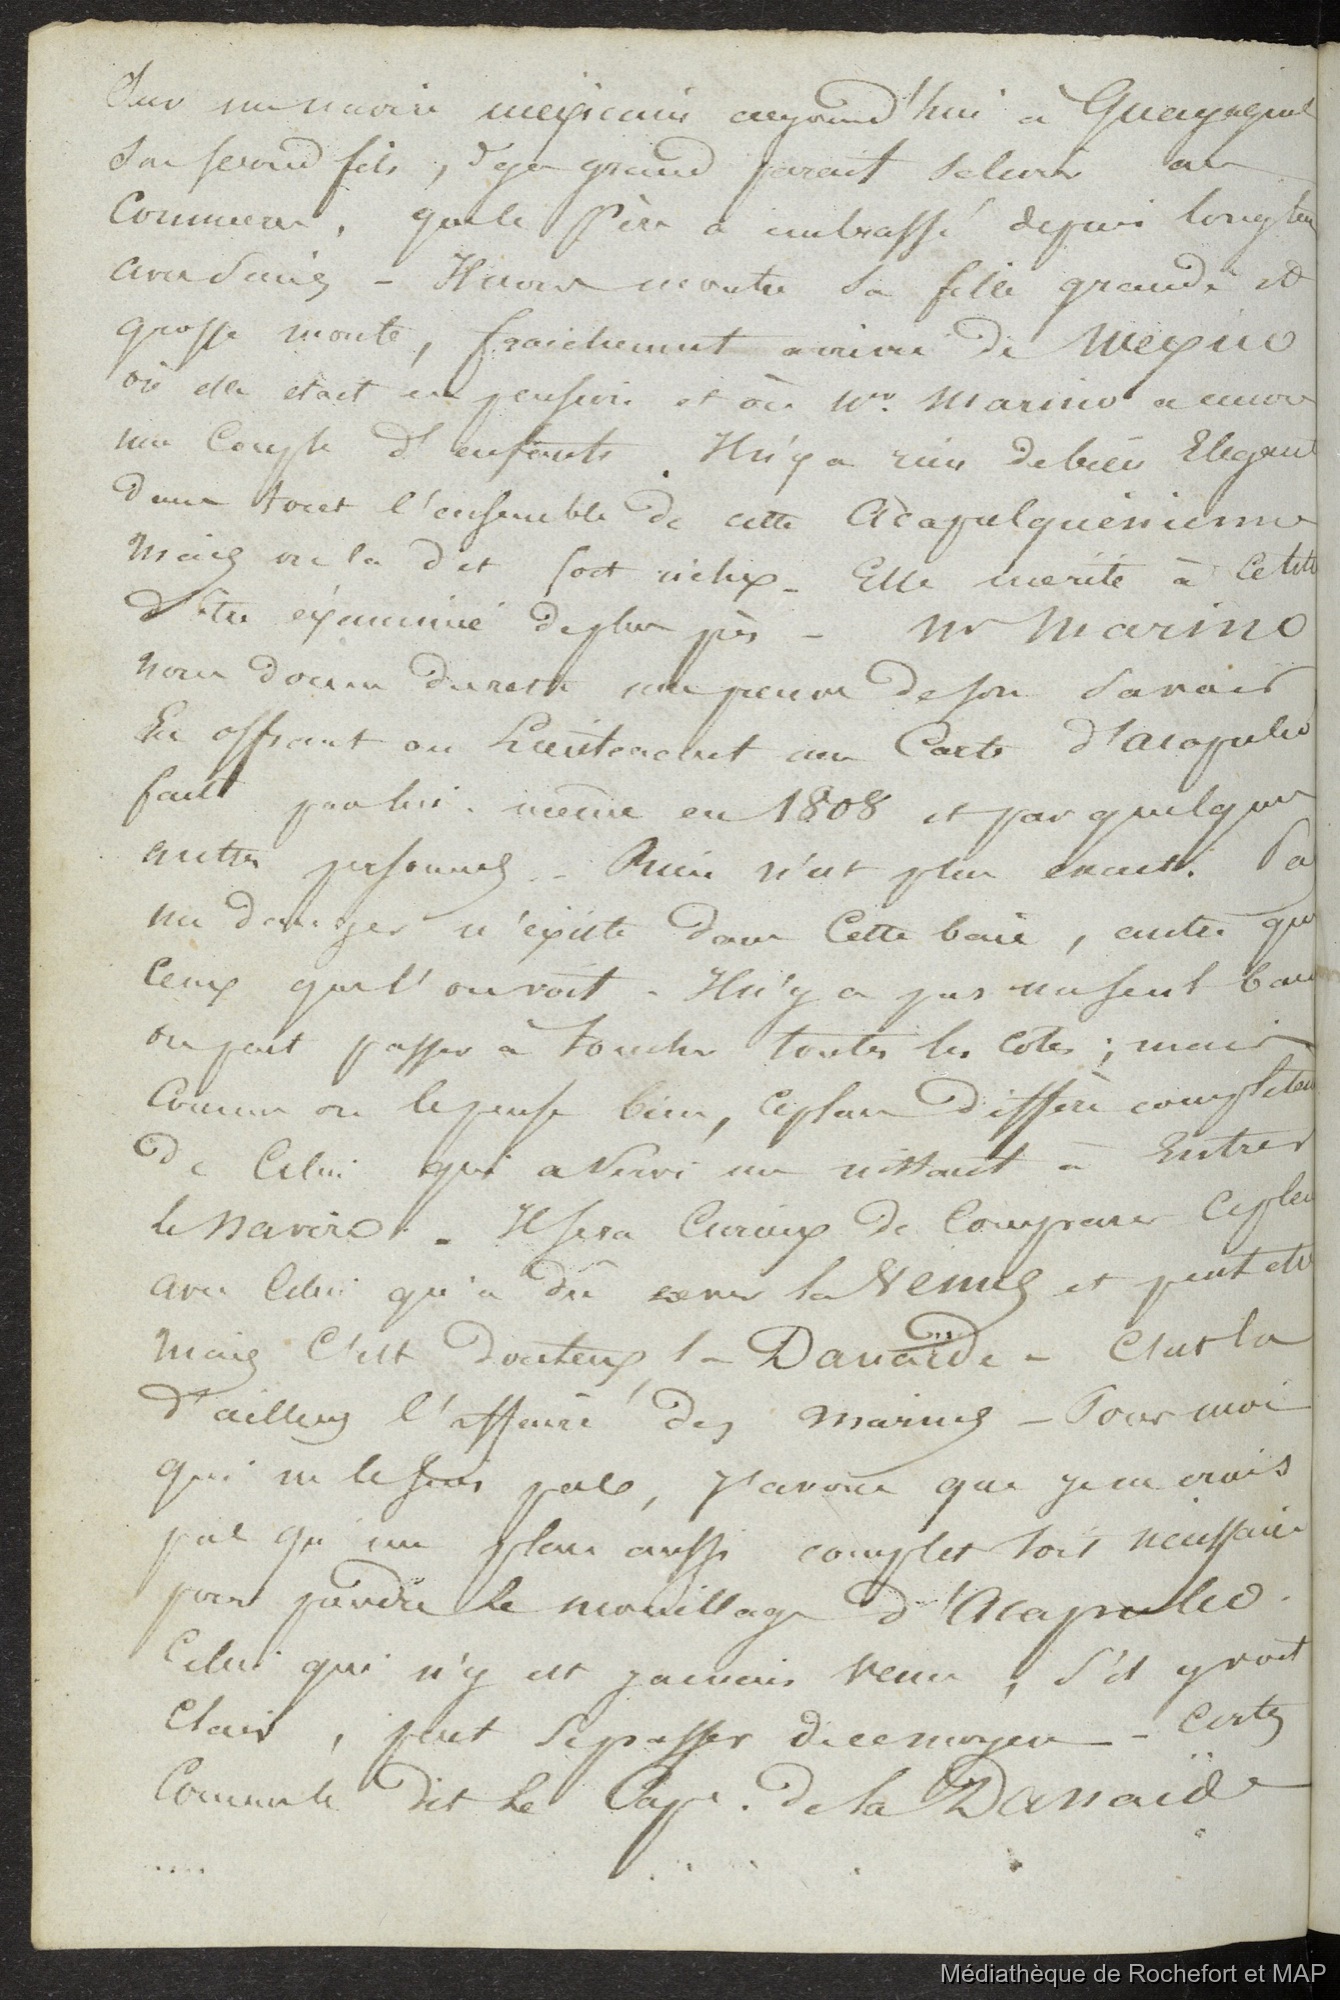 Sur un navire mexicain aujourd'hui à Guayaquil
Son second fils, deja grand parait se livrer au
Commerce, que le Père a embrassé depuis longtem
avec succès - Il nous montre sa fille grande et
grosse
, fraichement arrivée de Mexico
où elle etait en pension et où Mr. Marino a encore
un Couple d'enfants. Il n'y a rien de bien Elegant
dans tout l'ensemble de cette Acapulquénienne
Mais on la dit fort riche - Elle merite à ce titre
d'être examinée de plus près - Mr Marino
nous donne du reste une preuve de son Savoir
En offrant au Lieutenant une Carte d'acapulco
faite par lui-même en 1808 et par quelques
autres personnes - Rien n'est plus exact. Pa
un danger n'existe dans Cette baie, autre que
Ceux que l'on voit - Il n'y a pas un seul banc
on peut passer à toucher toutes les cotes ; mais
Comme on le pense bien, ce plan differe complètem
de Celui qui a servi un instant à Entrer
le navire. - Il sera Curieux de Comparer Ce plan
avec Celui qu'a dû lever la Venus et peut etre
Mais C'est douteux, la Danaïde - C'est la
d'ailleurs l'affaire des marins - Pour moi
qui ne le suis pas, J'avoue que je ne crois
pas qu'un plan aussi complet soit nécessaire
pour prendre le mouillage d'Acapulco.
Celui qui n'y est jamais venu, s'il y voit
Clair, peut se passer de ce moyen - Certes
Comme le dit le Cape. de la Danaïde
....
Médiathèque de Rochefort et MAP